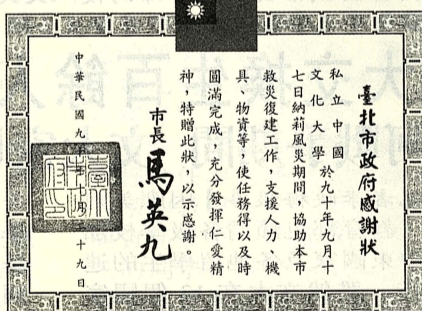 臺北市政府感謝狀
私立中國
文化大學 於九十年九月十
七日納莉風災期間，協助本市
救災復建工作，支援人力、機
具、物資等，使任務得以及時
圓滿完成，充分發揮仁愛精
神，特贈此狀，以示感謝。
市長 馬英九
中華民國九 十九日